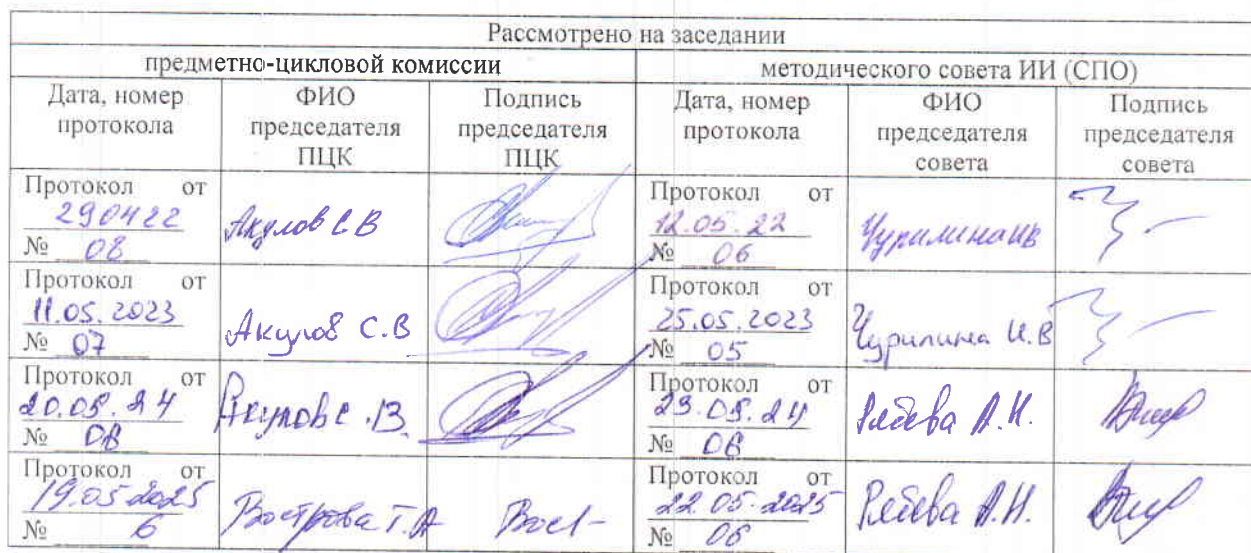 Рассмотрено на заседании
предметно-цикловой комиссии
методического совета ИИ (СПО)
Дата, номер протокола
ФИО председателя ПЦК
Подпись председателя ПЦК
Дата, номер протокола
ФИО председателя совета
Подпись председателя совета
Протокол от
290422
№ 08
Акулов С В
Протокол от
12.05.22
№ 06
Чурилина ИВ
Протокол от
11.05.2023
№ 07
Акулов С.В
Протокол от
25.05.2023
№ 05
Чурилина И.В
Протокол от
20.05.24
№ 08
Акулов С.В.
Протокол от
23.05.24
№ 06
А.Н.
Протокол от
19.05.2025
№ 6
Вострова Т.А
Протокол от
22.05.2025
№ 06
А.Н.